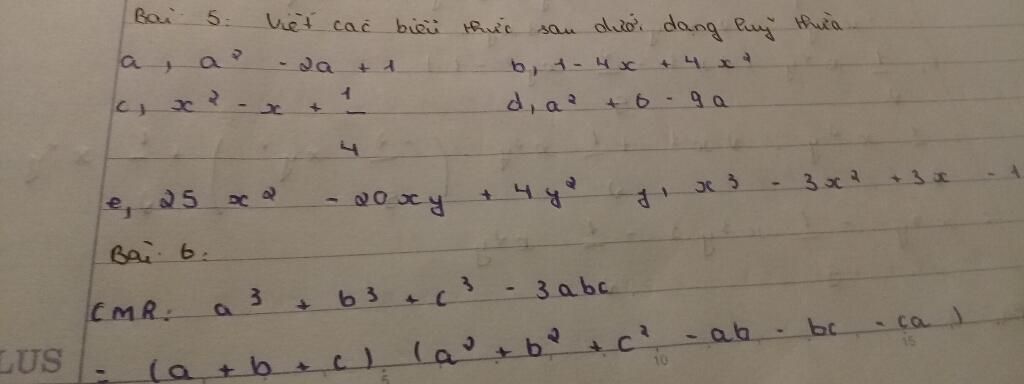 Bài 5: Viết các biểu thức sau dưới dạng luỹ thừa
a, a² - 2a + 1 b, 1 - 4x + 4x²
c, x² - x + 1/4 d, a² + 6 - 9a
e, 25x² - 20xy + 4y² y, x³ - 3x² + 3x - 1
Bài 6:
CMR: a³ + b³ + c³ - 3abc
= (a + b + c) (a² + b² + c² - ab - bc - ca)
LUS 5 10 15